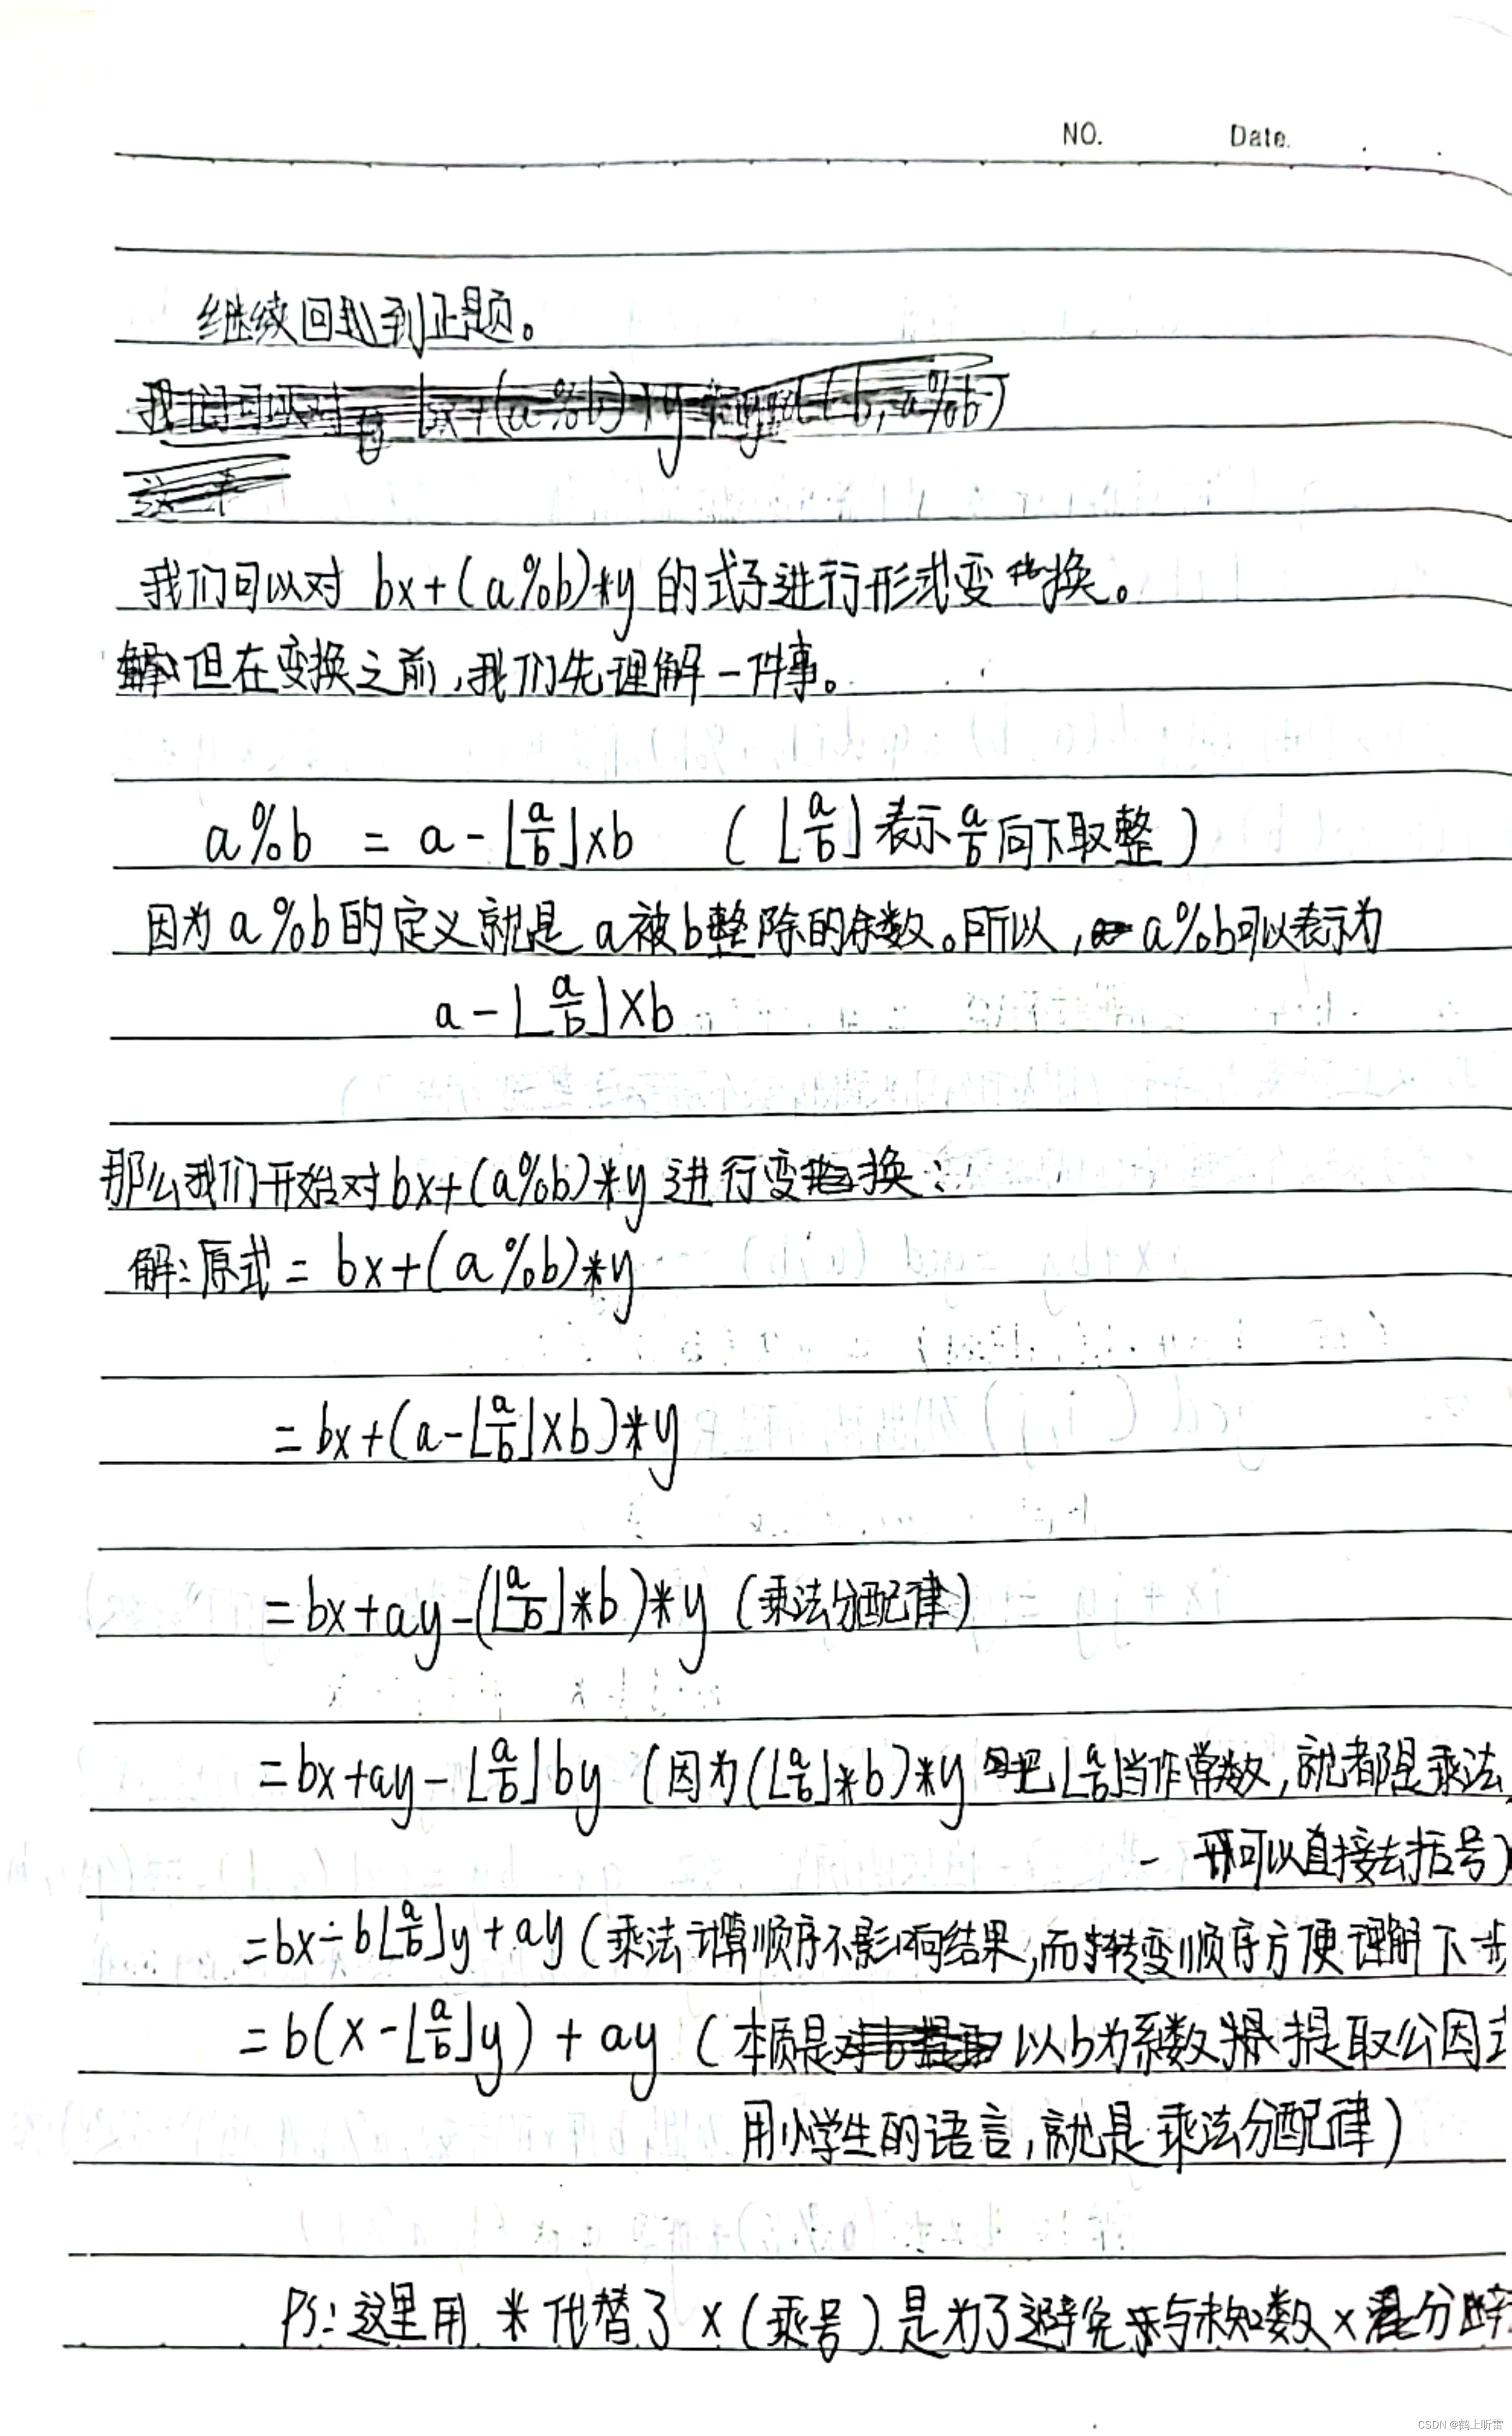 NO. Date.
继续回到正题。
我们可以对 bx+(a%b)*y 的式子进行形式变换。
但在变换之前,我们先理解一件事。
a%b = a-⌊a/b⌋×b (⌊a/b⌋表示a/b向下取整)
因为a%b的定义就是a被b整除的余数。所以,a%b可以表示为
a-⌊a/b⌋×b
那么我们开始对bx+(a%b)*y进行变换:
解:原式= bx+(a%b)*y
=bx+(a-⌊a/b⌋×b)*y
=bx+ay-(⌊a/b⌋*b)*y (乘法分配律)
=bx+ay-⌊a/b⌋by (因为(⌊a/b⌋*b)*y 把⌊a/b⌋当作常数,就都是乘法,
可以直接去括号)
=bx-b⌊a/b⌋y+ay (乘法计算顺序不影响结果,而转变顺序方便理解下步
=b(x-⌊a/b⌋y)+ay (本质是以b为系数提取公因式
用小学生的语言,就是乘法分配律)
PS:这里用 * 代替了 × (乘号)是为了避免与未知数x
CSDN @鹤上听雷